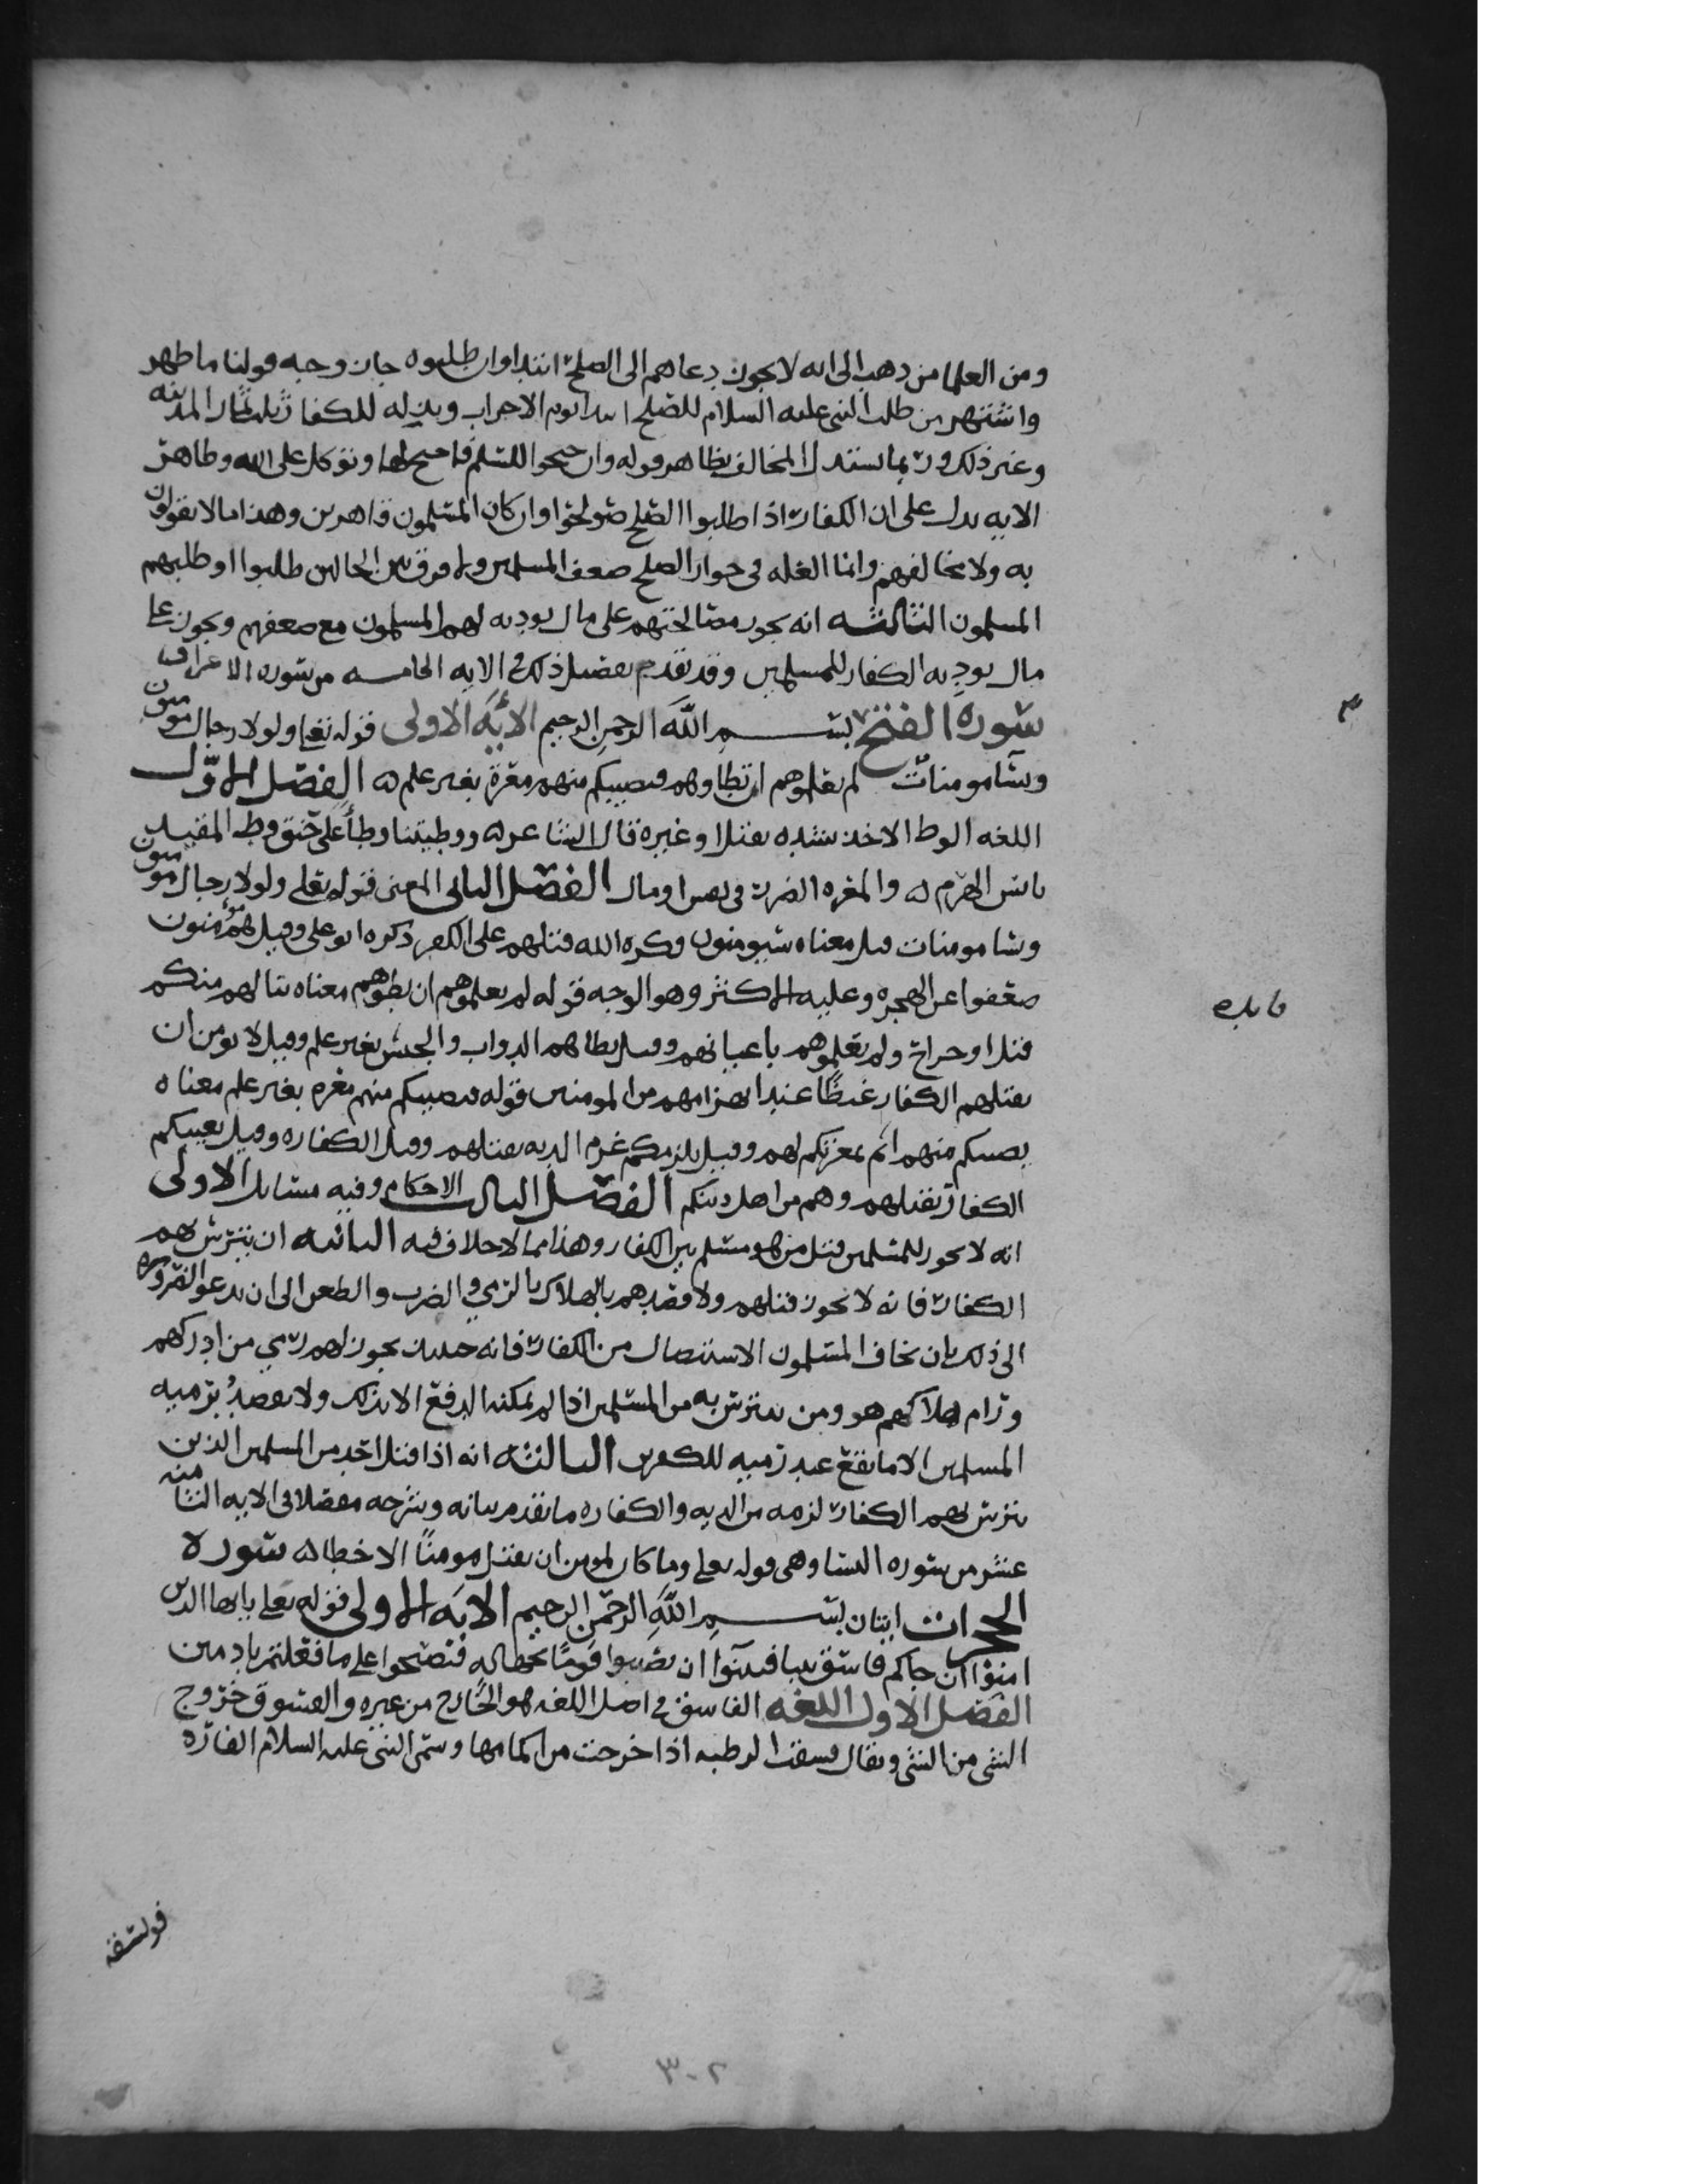 ومن العلما من ذهب الى انه لا يجوز دعاهم الى الصلح ابتدا وان طلبوه جاز وجه قولنا ما ظهر
واشتهر من طلب النبي عليه السلام للصلح ابتدا يوم الاحزاب وبذله للكفار ثلث ثمار المدينه
وغير ذلك وربما يستدل المخالف بظاهر قوله وان جنحوا للسلم فاجنح لها وتوكل على الله وظاهر
الايه يدل على ان الكفار اذا طلبوا الصلح صولحوا وان كان المسلمون قاهرين وهذا ما لا يقولون
به ولا مخالفهم وانما العله في جواز الصلح ضعف المسلمين ولا فرق بين الحالين طلبوا او طلبهم
المسلمون الثالثه انه يجوز مصالحتهم على مال يوديه لهم المسلمون مع ضعفهم ويجوز على
مال يوديه الكفار للمسلمين وقد تقدم تفصيل ذلك في الايه الخامسه من سوره الاعراف
سوره الفتح بسم الله الرحمن الرحيم الايه الاولى قوله تعلى ولولا رجال مومنون
ونسا مومنات لم تعلموهم ان تطاوهم فتصيبكم منهم معرة بغير علم ه الفصل الاول
اللغه الوطا الاخذ بشده بقتل او غيره قال الشاعر ه ووطيتنا وطأ على حنق وطا المقيد
يابس الهرم ه والمعره الضرر في نفس او مال الفصل الثاني المعنى قوله تعلى ولولا رجال مومنون
ونسا مومنات قيل معناه سيومنون وكره الله قتلهم على الكفر ذكره ابو علي وقيل هم مومنون
ضعفوا عن الهجره وعليه الاكثر وهو الوجه قوله لم تعلموهم ان تطوهم معناه تنالهم منكم
قتل او جراح ولم تعلموهم باعيانهم وقيل يطاهم الدواب والجيش بغير علم وقيل لا يومن ان
يقتلهم الكفار غيظًا عند انهزامهم من المومنين قوله فتصيبكم منهم معره بغير علم معناه
يصيبكم منهم اثم بمعرتكم لهم وقيل يلزمكم غرم الديه بقتلهم وقيل الكفاره وقيل يعيبكم
الكفار بقتلهم وهم من اهل دينكم الفصل الثالث الاحكام وفيه مسايل الاولى
انه لا يجوز للمسلمين قتل من هو مسلم بين الكفار وهذا مما لا خلاف فيه الثانيه ان يتترس بهم
الكفار فانه لا يجوز قتلهم ولا قصدهم بالهلاك بالرمي والضرب والطعن الى ان تدعو الضروره
الى ذلك بان يخاف المسلمون الاستئصال من الكفار فانه حينئذ يجوز لهم رمي من ادركهم
ورام هلاكهم هو ومن تترس به من المسلمين اذا لم يمكنه الدفع الا بذلك ولا يقصدُ برميه
المسلمين الا ما يقع عند رميه للكفرين الثالثه انه اذا قتل احد من المسلمين الذين
تترس بهم الكفار لزمه من الديه والكفاره ما تقدم بيانه وشرحه مفصلا في الايه الثامنه
عشر من سوره النسا وهي قوله تعلى وما كان لمومن ان يقتل مومنًا الا خطا ه سوره
الحجرات ايتان بسم الله الرحمن الرحيم الايه الاولى قوله تعلى يايها الذين
امنوا ان جاكم فاسق بنبا فتبينوا ان تصيبوا قومًا بجهاله فتصبحوا على ما فعلتم نادمين
الفصل الاول اللغه الفاسق في اصل اللغه هو الخارج من غيره والفسوق خروج
الشي من الشي ويقال فسقت الرطبه اذا خرجت من اكمامها وسمى النبي عليه السلام الفاره
فويسقه
فايده
٣٠٢